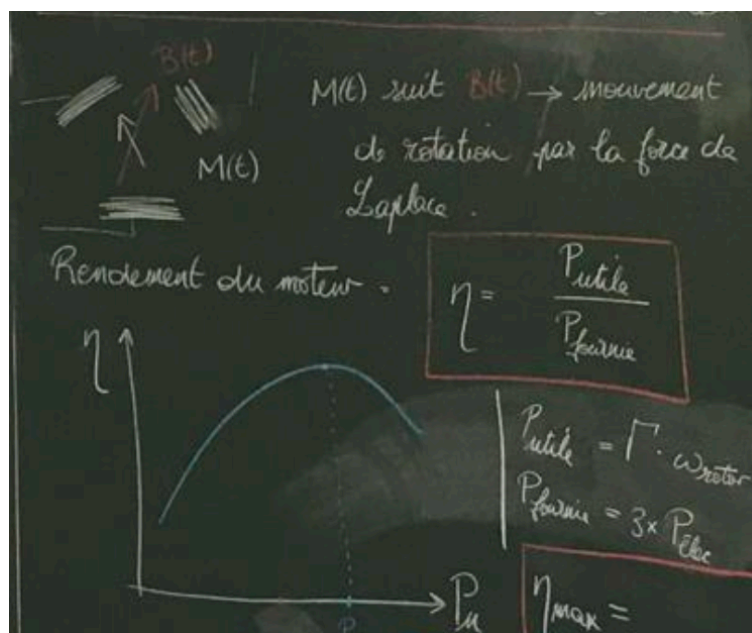 B(t)
M(t) suit B(t) → mouvement
de rotation par la force de
Laplace.
M(t)
Rendement du moteur.
η = P_utile / P_fournie
η
P_utile = Γ · ω_rotor
P_fournie = 3 × P_élec
P_u
η_max =